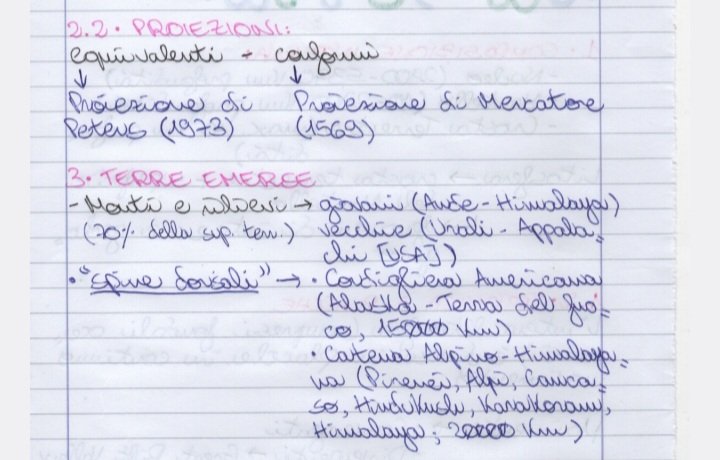 2.2. PROIEZIONI:
equivalenti - conformi
↓ ↓
Proiezione di Proiezione di Mercatore
Peters (1973) (1569)
3. TERRE EMERSE
- Monti e rilievi → giovani (Ande - Himalaya)
(70% della sup. terr.) vecchie (Urali - Appala=
chi [USA])
• "spine dorsali" → • Cordigliera Americana
(Alaska - Terra del fuo=
co, 15000 Km)
• Catena Alpino-Himalaya=
na (Pirenei, Alpi, Cauca=
so, Hindukush, Karakoram,
Himalaya; 20000 Km)